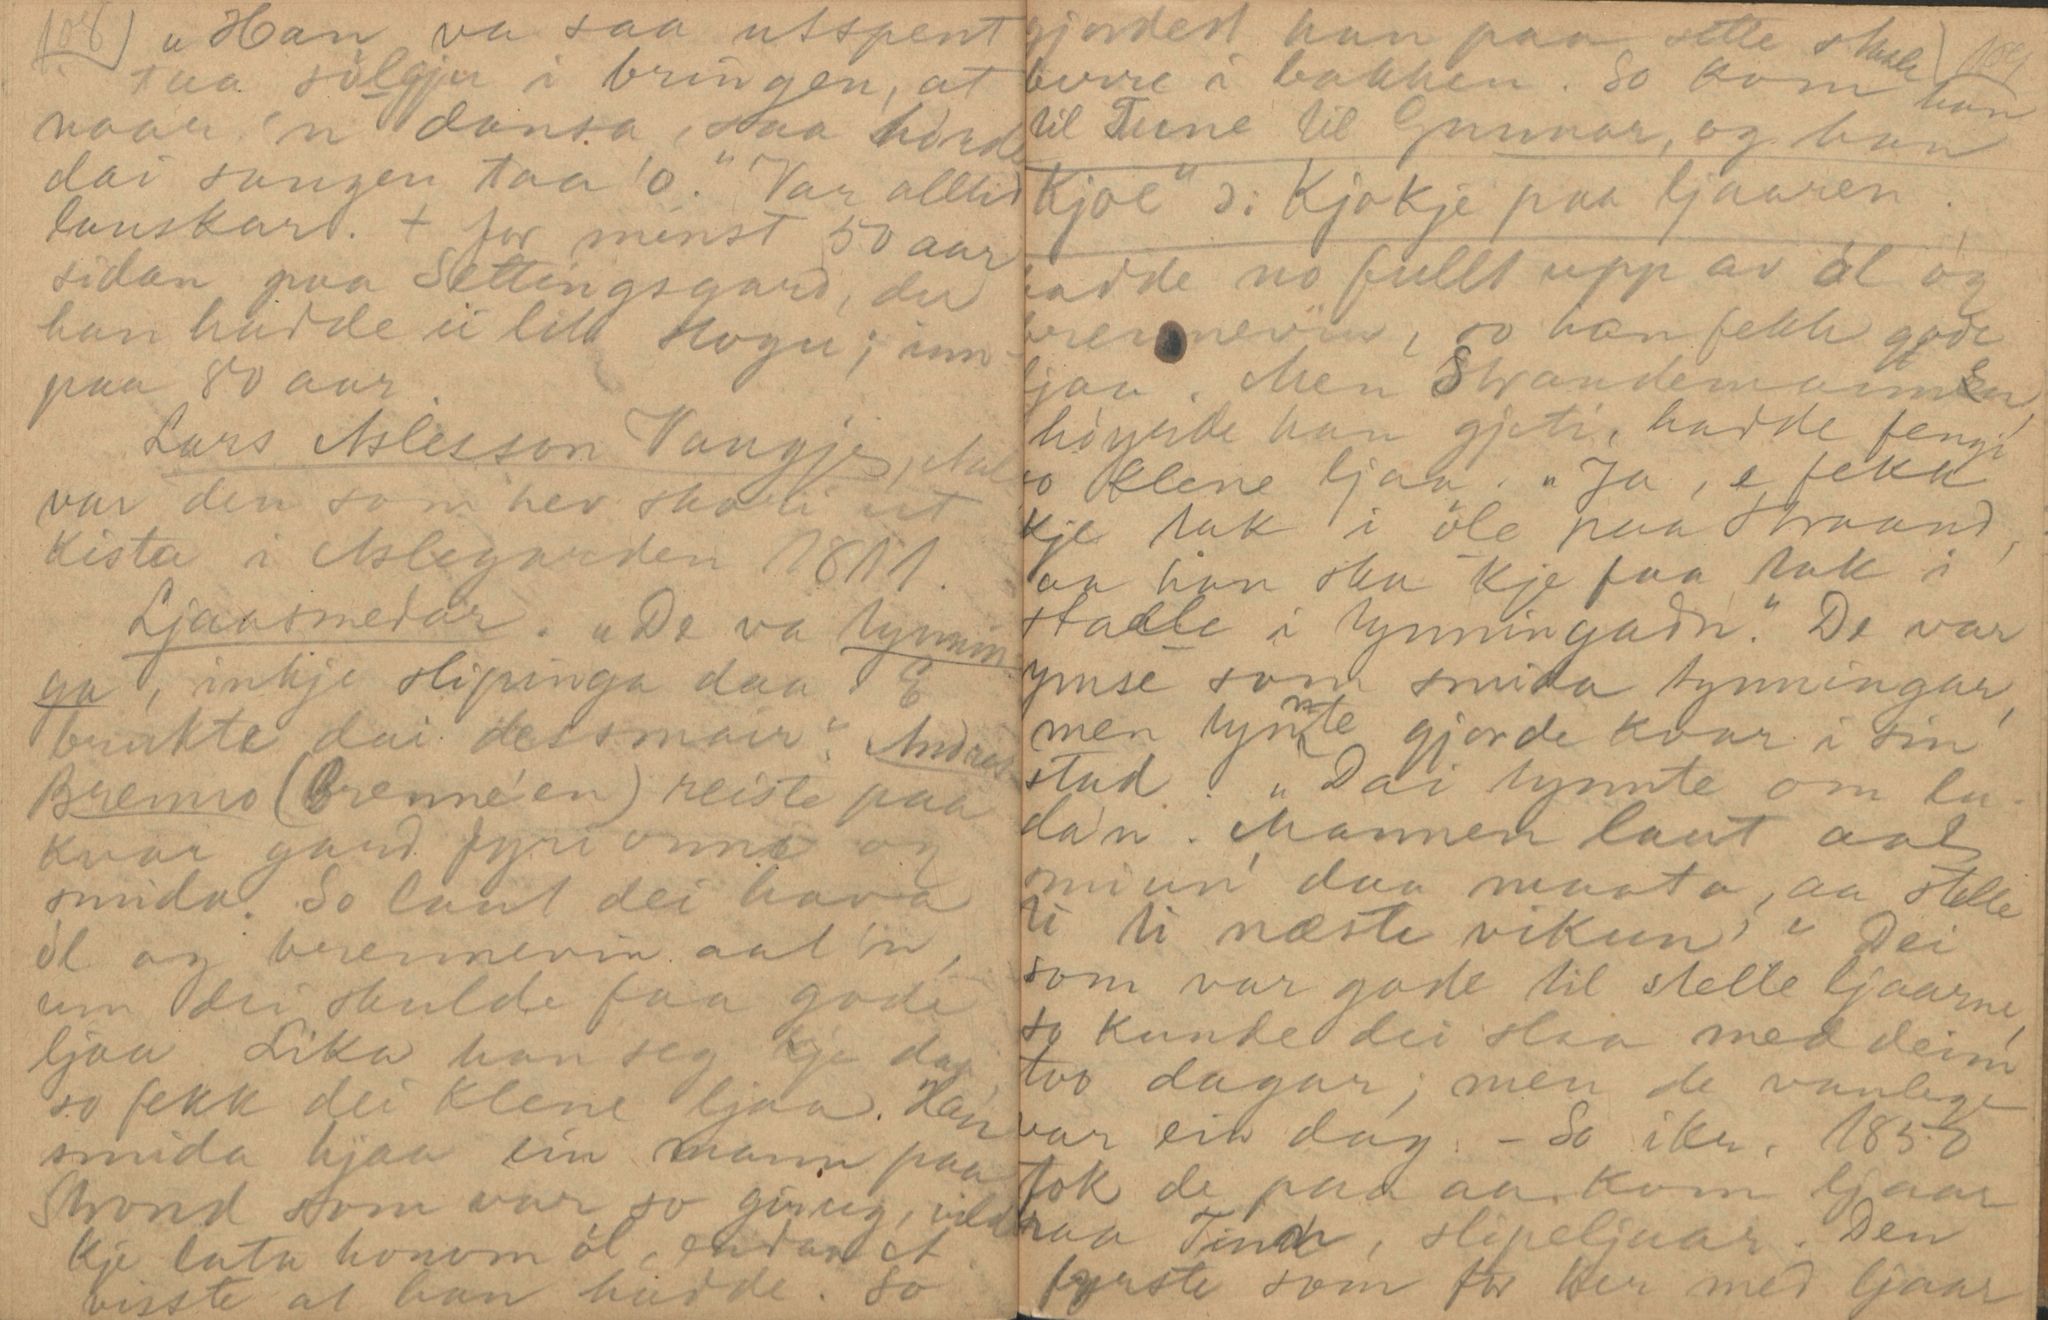 108)
„Han va saa utspent
taa sölgju i bringen, at
naar 'n dansa, saa hörde
dai sangen taa 'o." Var alltid
lauskar. + for minst 50 aar
sidan paa Settingsgard, der
han hadde ei liti stogu; inn-
paa 80 aar.
Lars Aslesson Vangje, Aal
var den som hev skori ut
kista i Aslegarden 1811.
Ljaasmedar. „De va tynnin-
ga, inkje slipinga daa. E
brukte dai dessmair". Andres
Brenno (Brenne'en) reiste paa
kvar gard fyri onni og
smida. So laut dei hava
öl og brennevin aat 'n,
um dei skulde faa gode
ljaa. Lika han seg kje daa,
so fekk dei klene ljaa. Han
smida hjaa ein mann paa
Strond som var so girug, vilde
kje lata honom öl, endaa A.
visste at han hadde. So
109
gjordest han paa sette staale
berre i bakken. So kom han
til Tune til Gunnar, og han
Kjöe" ɔ: Kjøkje paa ljaaren.
hadde no fullt upp av öl og
brennevin, so han fekk gode
ljaa. Men Strandemannen,
höyrde han gjeti, hadde fengi
so klene ljaa. „Ja, e fekk
kje tak i öle paa Straand,
aa han ska kje faa tak i
staale i tynningadn." De var
ymse som smida tynningar,
men tynnte gjorde kvar i sin
stad. „Dai tynnte om lau-
da'n. Mannen laut aat
smiun' daa maata, aa stelle
ti ti næste vikun'" Dei
som var gode til stelle ljaarne,
so kunde dei slaa med deim
tvo dagar; men de vanlege
var ein dag. – So ikr. 1850
tok de paa aa kom ljaar
fraa Tinn, slipeljaar. Den
fyrste som for her med ljaar